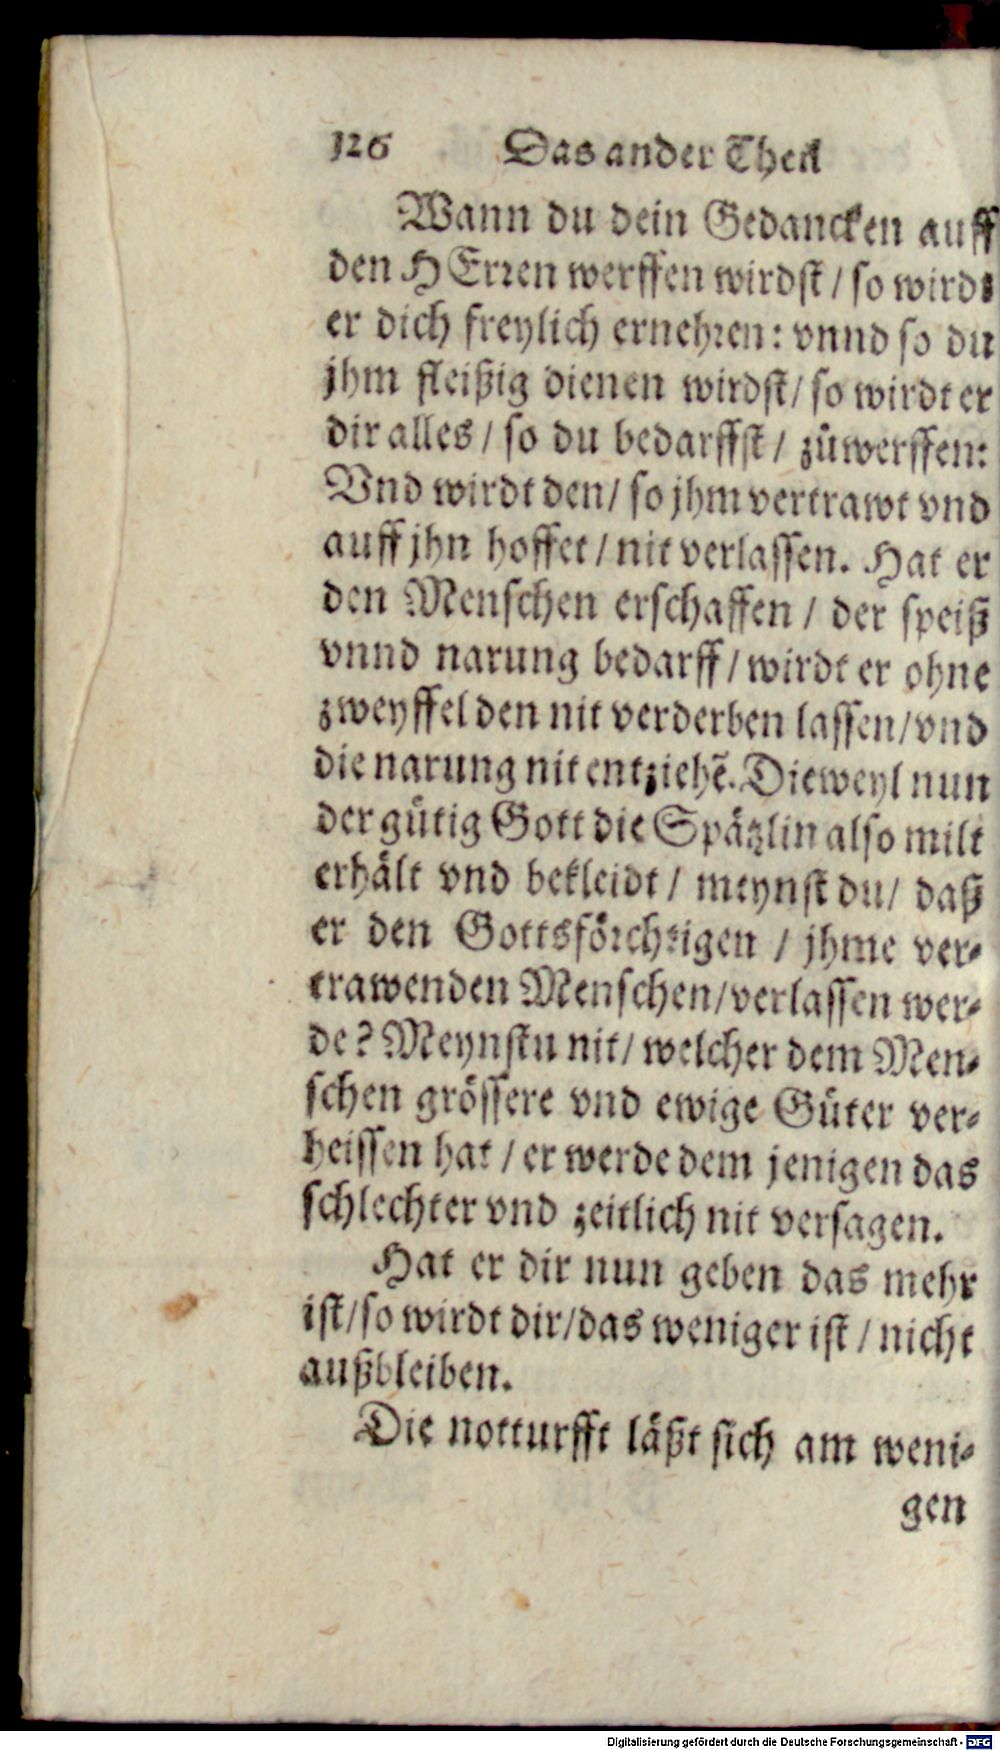 126 Das ander Theil
Wann du dein Gedancken auff
den HErren werffen wirdst / so wirdt
er dich freylich ernehren: vnnd so du
jhm fleißig dienen wirdst / so wirdt er
dir alles / so du bedarffst / zůwerffen:
Vnd wirdt den / so jhm vertrawt vnd
auff jhn hoffet / nit verlassen. Hat er
den Menschen erschaffen / der speiß
vnnd narung bedarff / wirdt er ohne
zweyffel den nit verderben lassen / vnd
die narung nit entziehẽ. Dieweyl nun
der gütig Gott die Spätzlin also milt
erhält vnd bekleidt / meynst du / daß
er den Gottsförchtigen / jhme ver-
trawenden Menschen / verlassen wer-
de? Meynstu nit / welcher dem Men-
schen grössere vnd ewige Güter ver-
heissen hat / er werde dem jenigen das
schlechter vnd zeitlich nit versagen.
Hat er dir nun geben das mehr
ist / so wirdt dir / das weniger ist / nicht
außbleiben.
Die notturfft läßt sich am weni-
gen
Digitalisierung gefördert durch die Deutsche Forschungsgemeinschaft - DFG